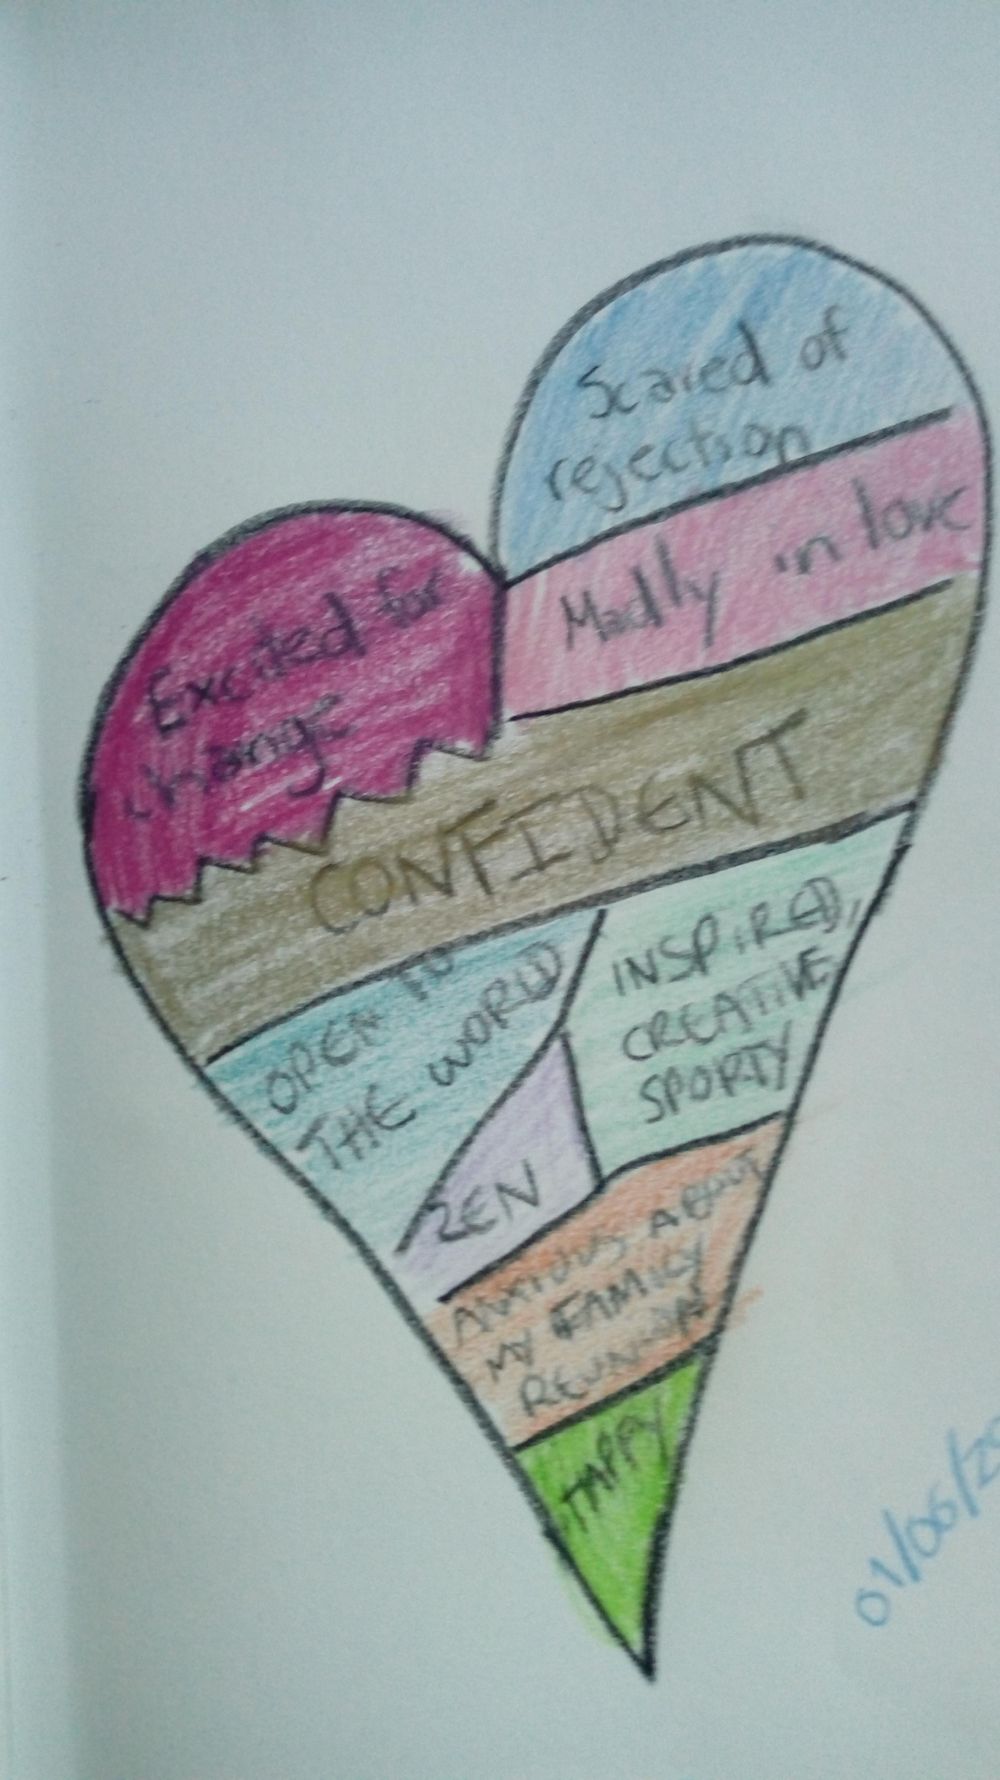 Scared of
rejection
Madly in love
Excited for
change
CONFIDENT
OPEN TO
THE WORLD
INSPIRED,
CREATIVE
SPORTY
ZEN
ANXIOUS ABOUT
MY FAMILY
REUNION
HAPPY
01/06/20